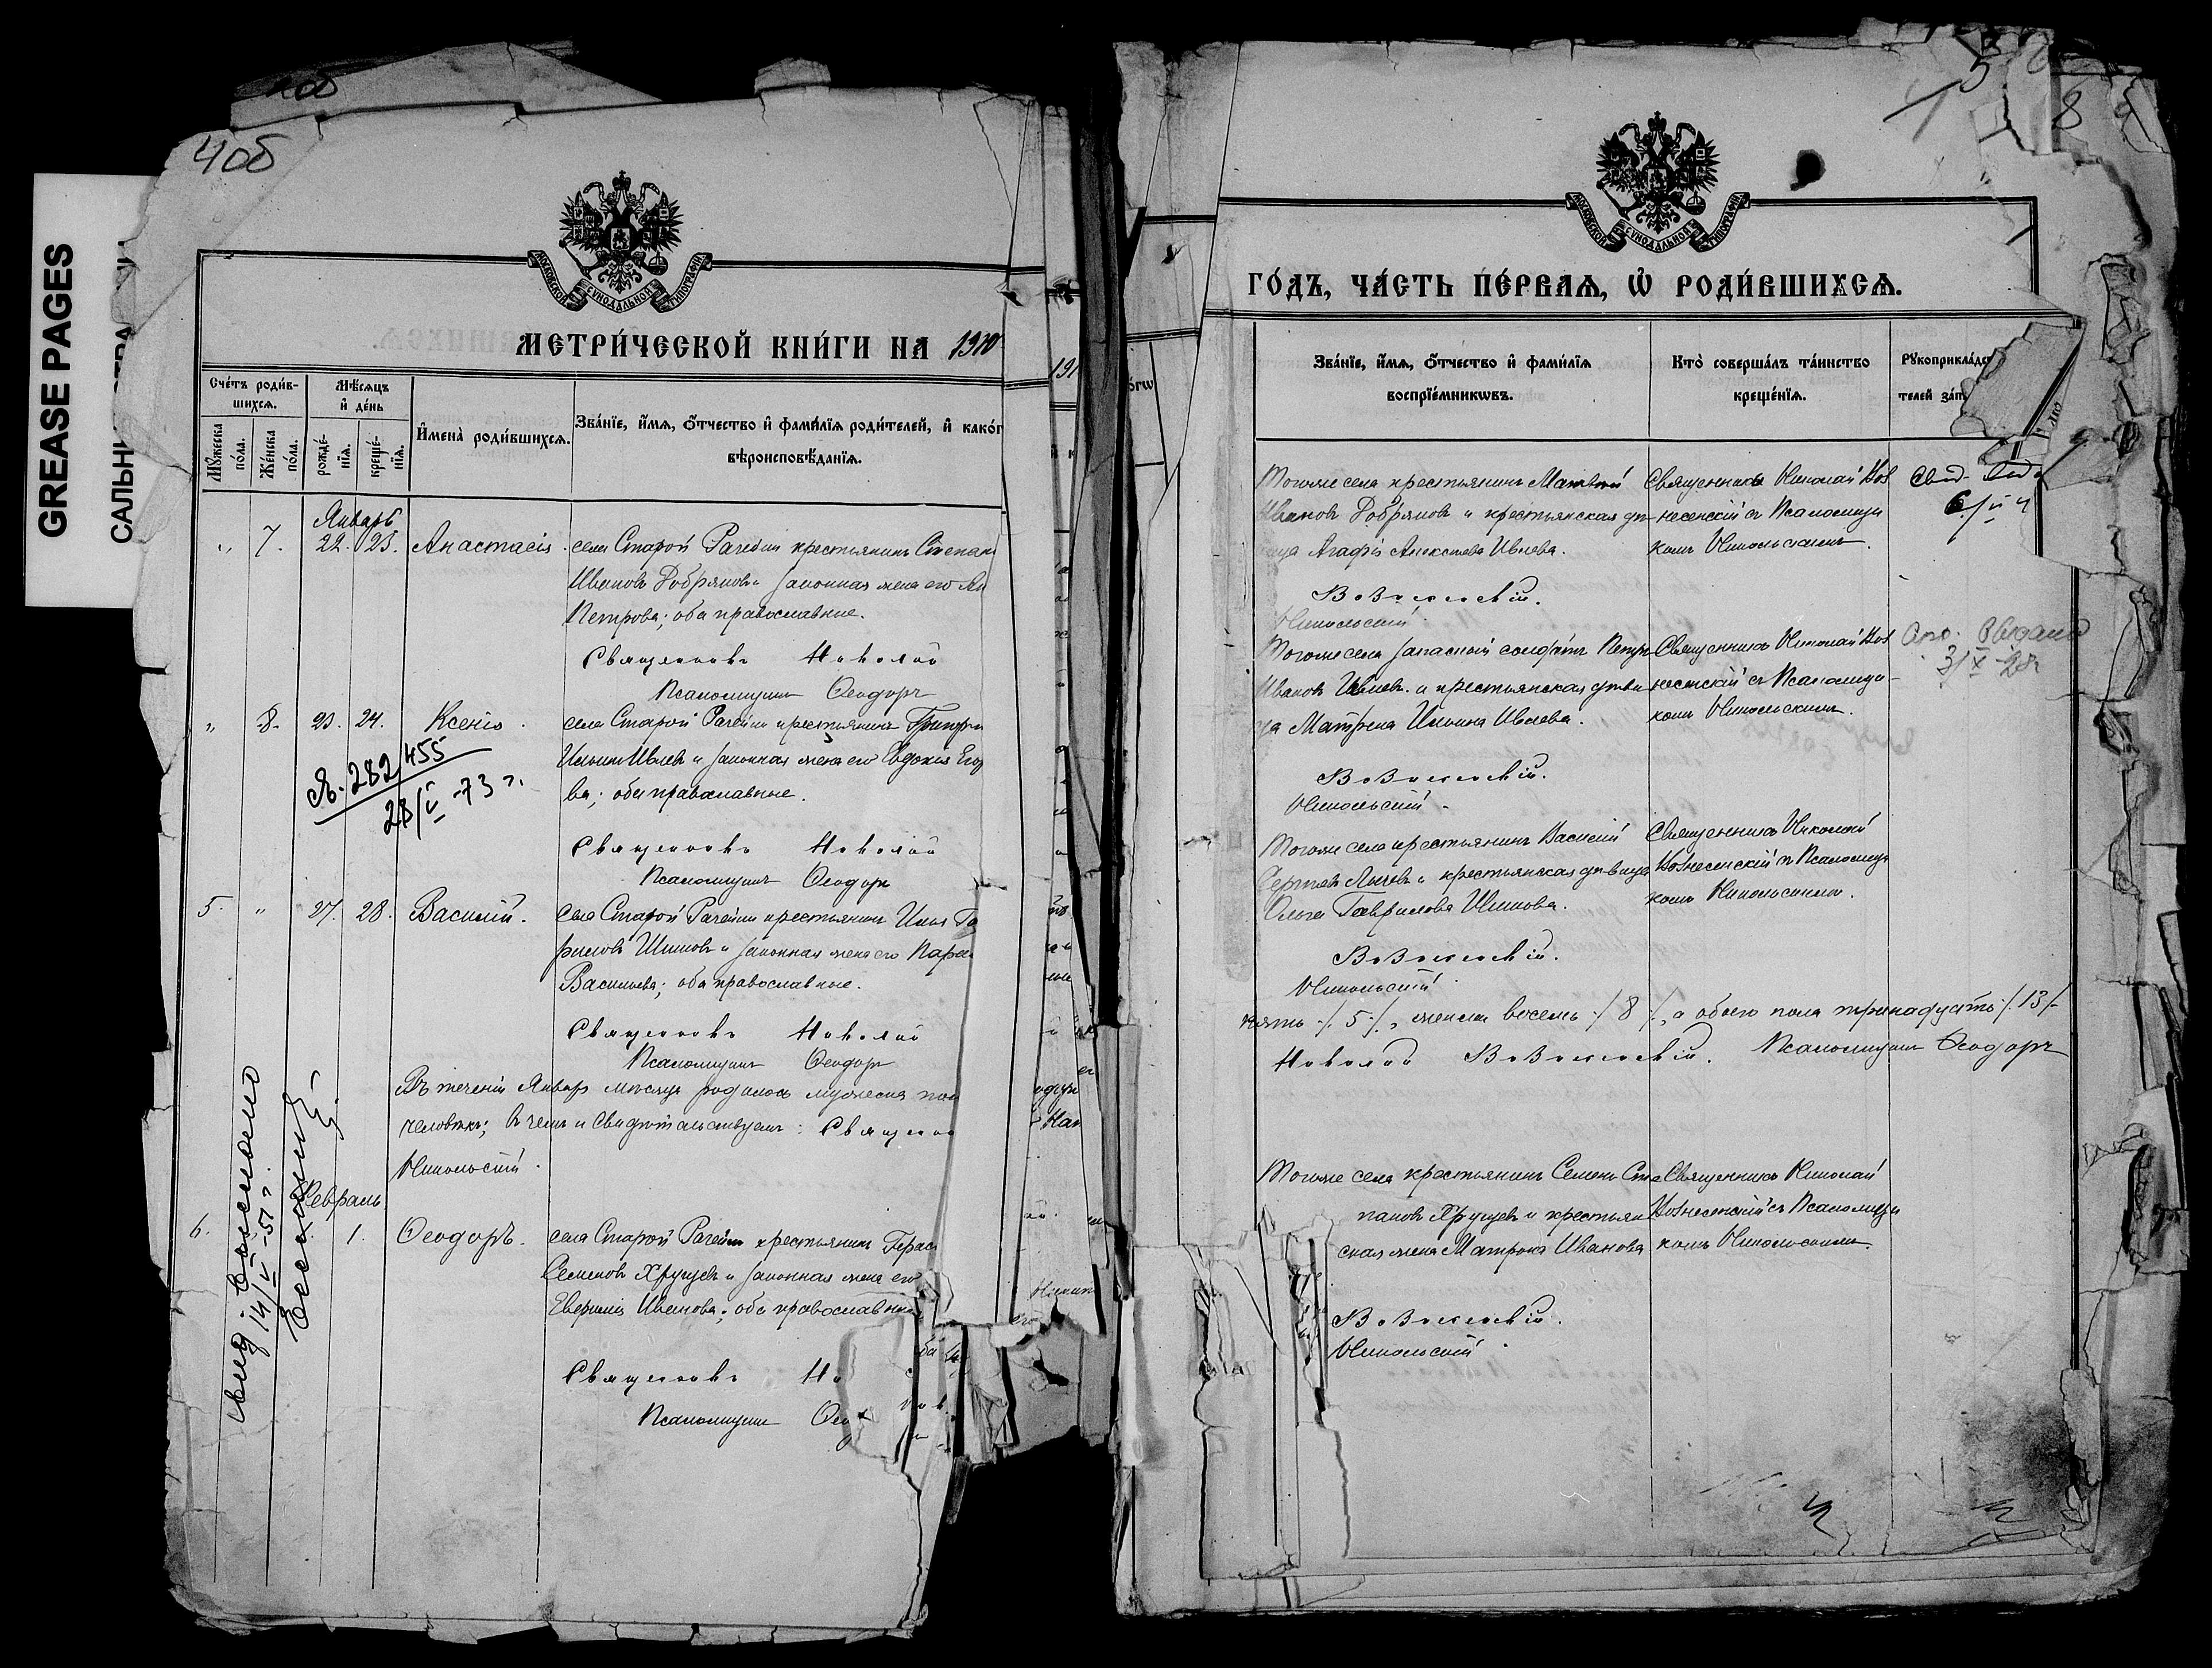 4 об
GREASE PAGES
МОСКОВСКОЙ СѴНОДАЛЬНОЙ ТИПОГРАФІИ
МЕТРИ́ЧЕСКОЙ КНИ́ГИ НА 1910
Сче́тъ роди́в-
шихсѧ.
Му́жеска по́ла.
Же́нска по́ла.
Мѣ́сѧцъ
и҆ де́нь
рожде́-
нїѧ.
креще́-
нїѧ.
И҆мена̀ роди́вшихсѧ.
Зва́нїе, и҆́мѧ, ѻ҆́тчество и҆ фами́лїѧ роди́телей, и҆ како́г
вѣроисповѣ́данїѧ.
Январь
„ 7. 22. 23. Анастасія. села Старой Рачейки крестьянинъ Степан
Ивановъ Добряковъ и законная жена его Ан
Петрова; оба православные.
Священникъ Николай
Псаломщикъ Ѳеодоръ
„ 8. 23. 24. Ксенія. села Старой Рачейки крестьянинъ Григорі
Ильинъ Ивлевъ и законная жена его Евдокія Его
ва; оба православные.
282455
28/V-73 г.
Священникъ Николай
Псаломщикъ Ѳеодоръ
5. „ 27. 28. Василій. села Старой Рачейки крестьянинъ Илья Га
риловъ Шишовъ и законная жена его Парас
Васильева; оба православные.
Священникъ Николай
Псаломщикъ Ѳеодоръ
Въ теченіи Январѣ мѣсяцѣ родилось мужеска пол
человѣкъ; въ чемъ и свидѣтельствуемъ: Священни
Никольскій.
Февраль
6. 1. Ѳеодоръ. села Старой Рачейки крестьянинъ Герас
Семеновъ Хрущевъ и законная жена его
Иванова; оба православны
Священникъ Ни
Псаломщикъ Ѳео
14/V-51 г.
МОСКОВСКОЙ СѴНОДАЛЬНОЙ ТИПОГРАФІИ
ГО́ДЪ, ЧА́СТЬ ПЕ́РВАѦ, Ѡ҆ РОДИ́ВШИХСѦ.
Зва́нїе, и҆́мѧ, ѻ҆́тчество и҆ фами́лїѧ
воспрїе́мникѡвъ.
Кто̀ соверша́лъ та́инство
креще́нїѧ.
Рꙋкоприкла́дст
телей за́п
Тогоже села крестьянинъ Матвѣй
Ивановъ Добряковъ и крестьянская дѣ
вица Агафія Алексѣева Ивлева.
Вознесенскій.
Никольскій
Священникъ Николай Воз
несенскій съ Псаломщи
комъ Никольскимъ.
Тогоже села запасной солдатъ Петръ
Ивановъ Ивлевъ и крестьянская дѣви
ца Матрена Ильина Ивлева.
Вознесенскій.
Никольскій.
Священникъ Николай Воз
несенскій съ Псаломщи-
комъ Никольскимъ.
Тогоже села крестьянинъ Василій
Сергѣевъ и крестьянская дѣвица
Ольга Гаврилова Шишова.
Вознесенскій.
Никольскій
Священникъ Николай
Вознесенскій съ Псаломщи
комъ Никольскимъ.
пять /5/, женска восемь /8/, а обоего пола тринадцать /13/-
Николай Вознесенскій. Псаломщикъ Ѳеодоръ
Тогоже села крестьянинъ Семенъ Сте
пановъ Хрущевъ и крестьян
ская жена Матрона Иванова
Вознесенскій.
Никольскій
Священникъ Николай
Вознесенскій съ Псаломщи
комъ Никольскимъ.